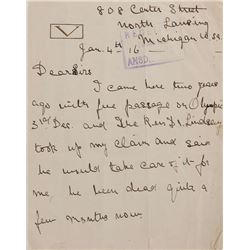 808 Center Street
North Lansing
Michigan U.S.A.
Jan. 4th 16
ANSD.
Dear Sirs
I came here two years
ago with free passage on Olympic
3rd Dec. and The Rev Dr Lindsay
took up my claim and said
he would take care of it for
me he been dead quite a
few months now.